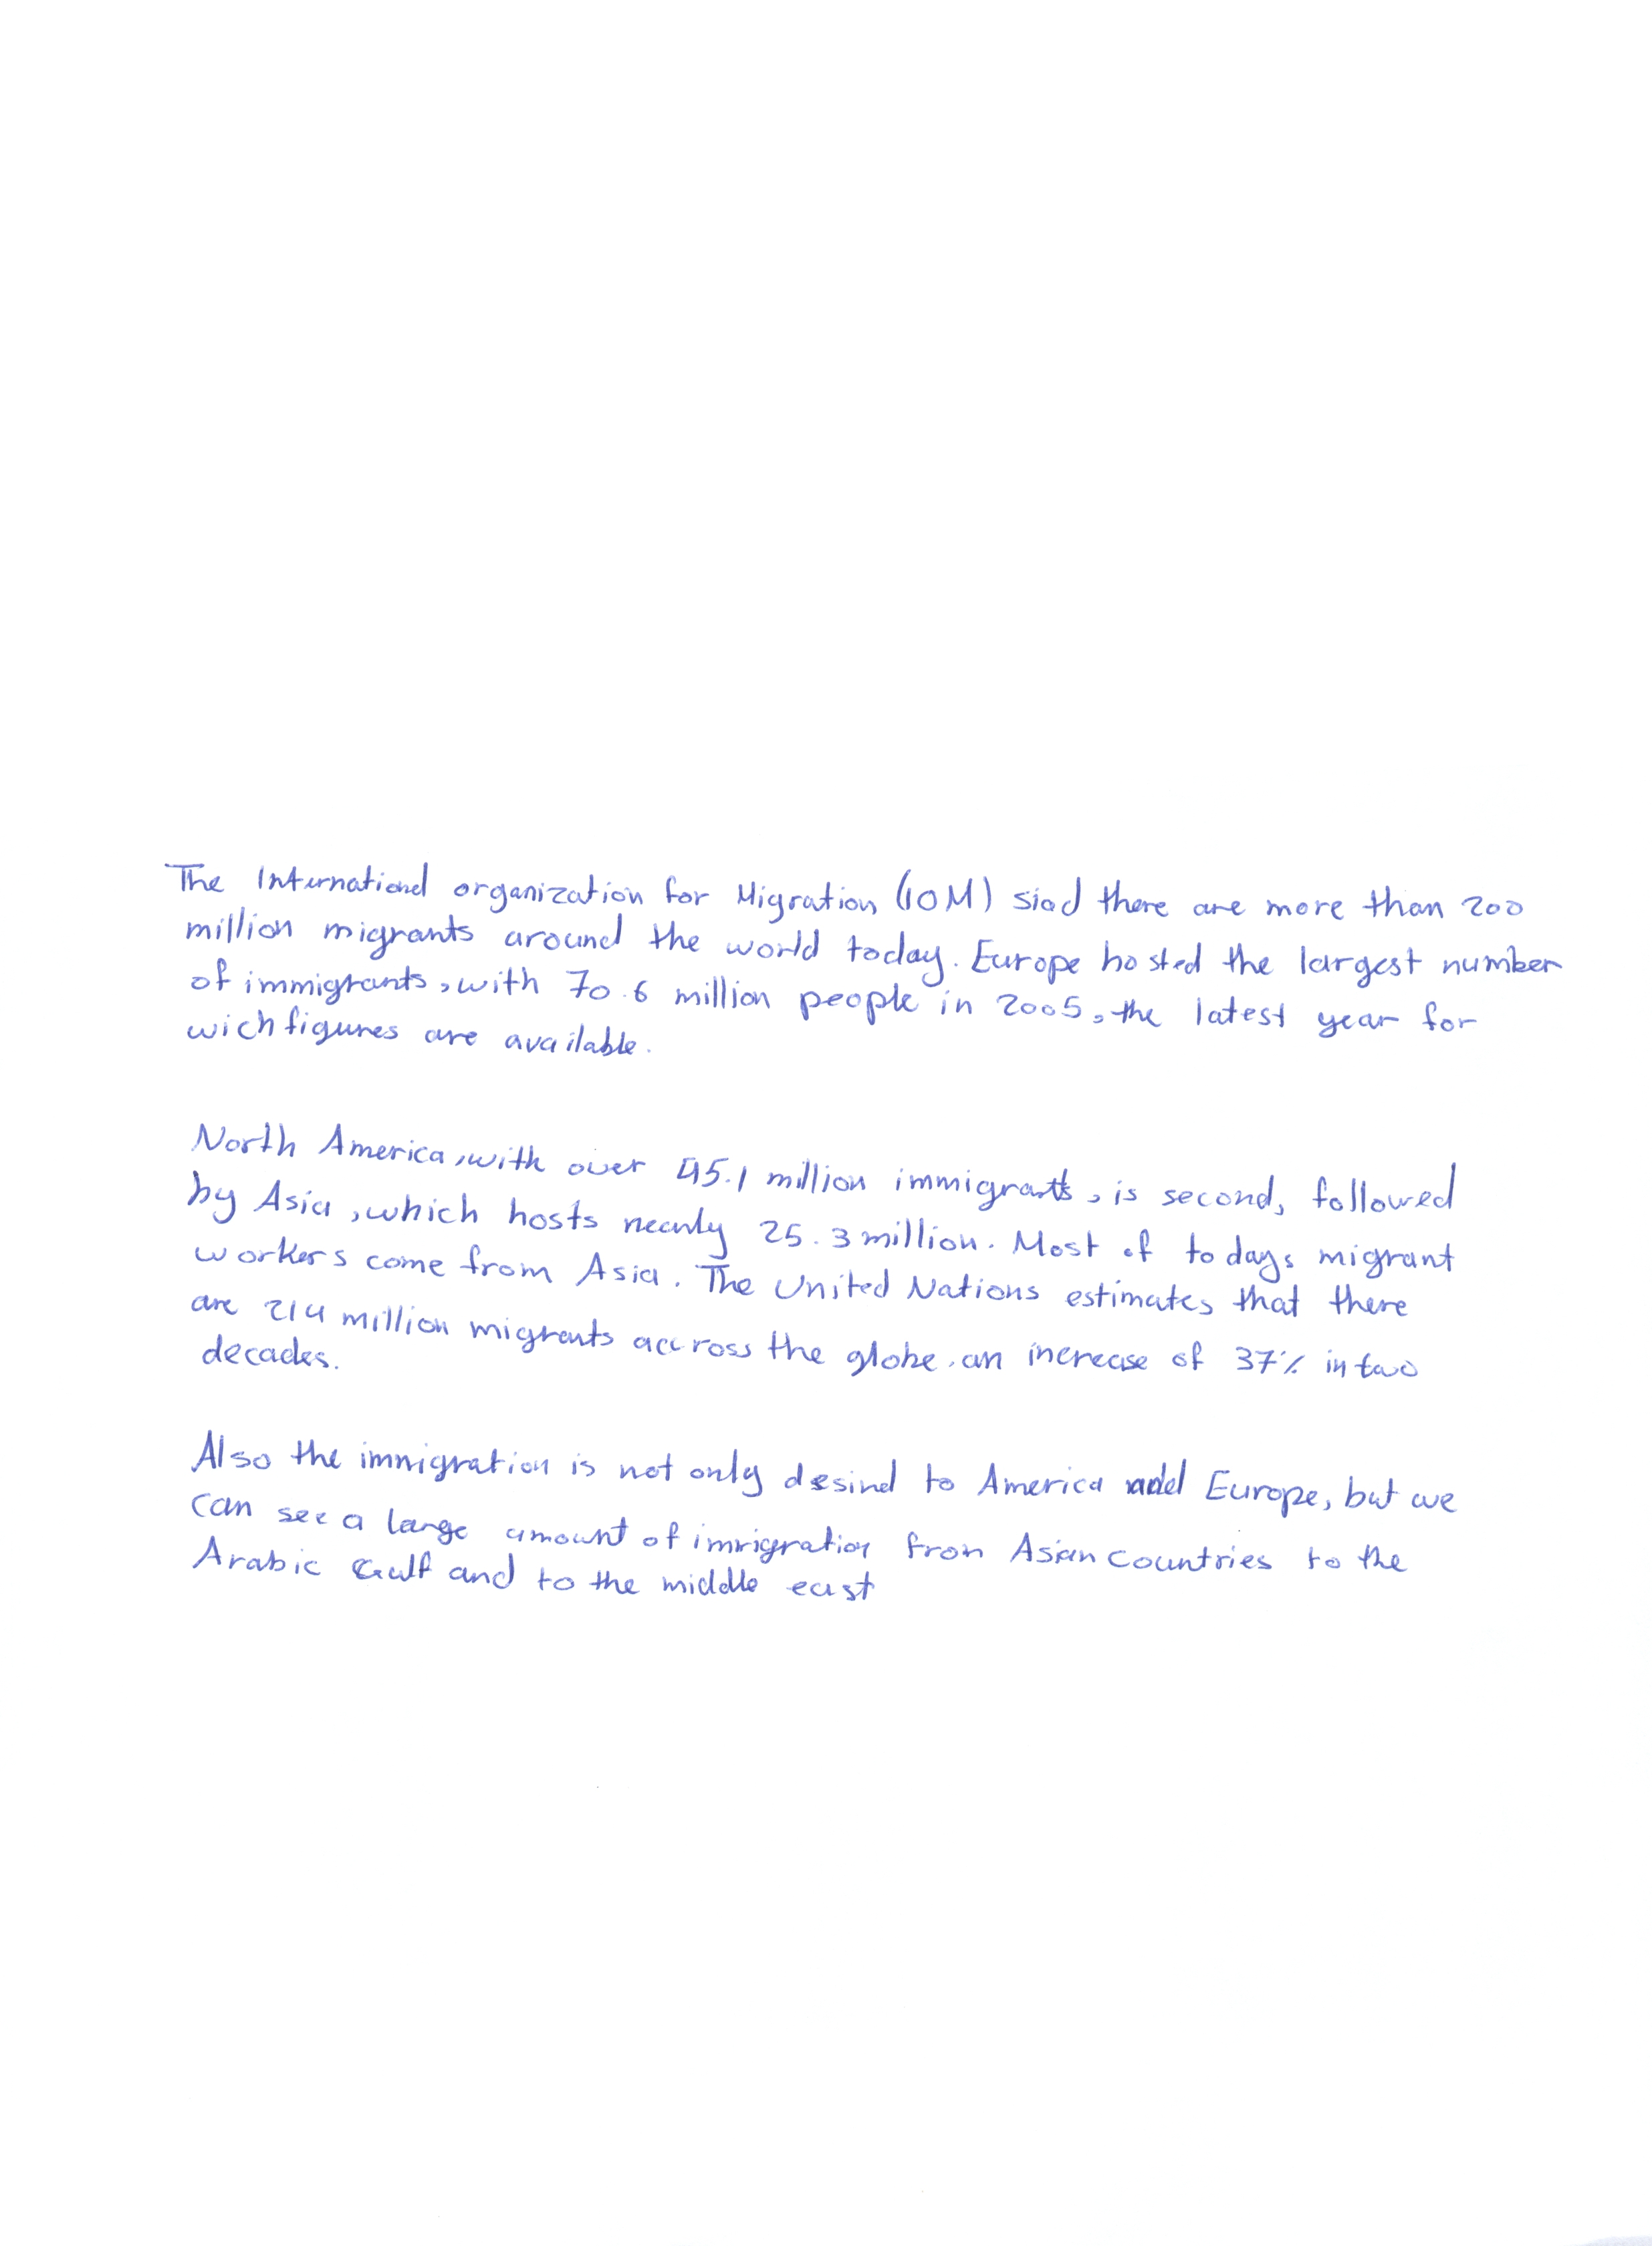 The International organization for Migration (IOM) siad there are more than 200
million migrants around the world today. Europe hosted the largest number
of immigrants, with 70.6 million people in 2005, the latest year for
wich figures are available.
North America, with over 45.1 million immigrants, is second, followed
by Asia, which hosts nearly 25.3 million. Most of todays migrant
workers come from Asia. The United Nations estimates that there
are 214 million migrants accross the globe, an increase of 37% in two
decades.
Also the immigration is not only desind to America and Europe, but we
can see a large amount of immigration from Asian countries to the
Arabic Gulf and to the middle east